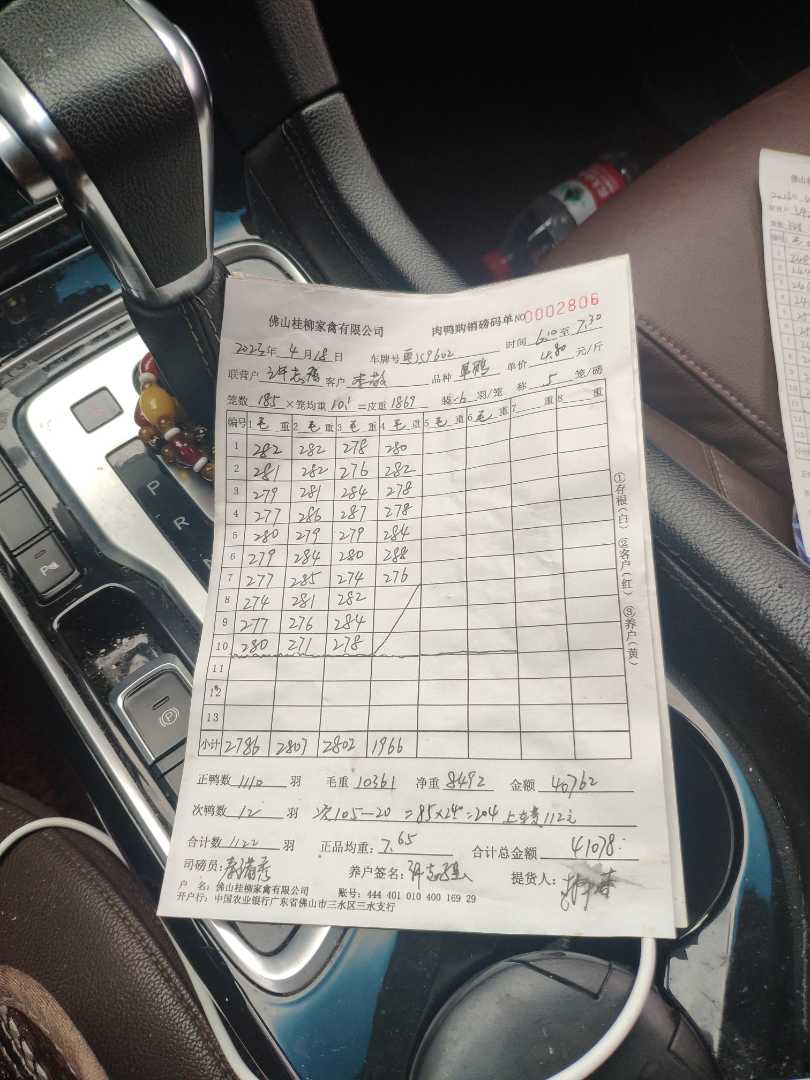 佛山桂柳家禽有限公司 肉鸭购销磅码单 NO 0002806
2023年 4月18日 车牌号 粤J59602 时间 6.10至7.30
联营户 客户 李敬 品种 单价 4.80 元/斤
笼数 185 ×笼均重 10.1 =皮重 1869 装 6 羽/笼 称 5 笼/磅
编号 1 毛 重 2 毛 重 3 毛 重 4 毛 重 5 毛 重 6 毛 重 7 重 8 重
1 282 282 278 280
2 281 282 276 282
3 279 281 284 278
4 277 286 287 278
5 280 279 279 284
6 279 284 280 288
7 277 285 274 276
8 274 281 282
9 277 276 284
10 280 271 278
11
12
13
小计 2786 2807 2802 1966
①存根(白) ②客户(红) ③养户(黄)
正鸭数 1110 羽 毛重 10361 净重 8492 金额 40762
次鸭数 12 羽 次105-20=85×2.4=204 上车费112元
合计数 1122 羽 正品均重: 7.65 合计总金额 41078
司磅员: 养户签名: 提货人:
户 名: 佛山桂柳家禽有限公司 账号: 444 401 010 400 169 29
开户行: 中国农业银行广东省佛山市三水区三水支行
P
R
P